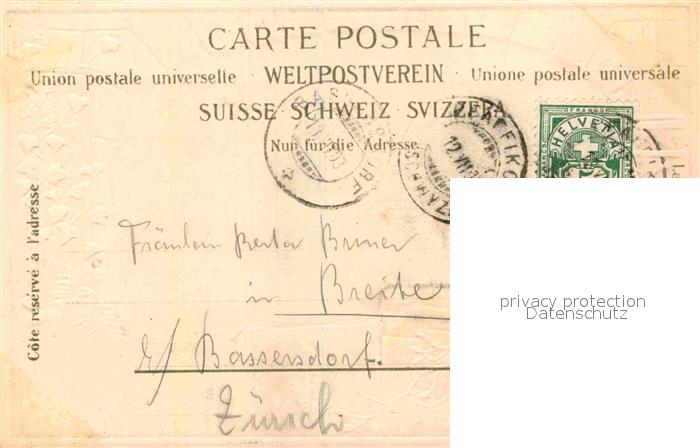 CARTE POSTALE
Union postale universelle · WELTPOSTVEREIN · Unione postale universale
SUISSE SCHWEIZ SVIZZERA
Nur für die Adresse
Côte réservé à l'adresse
FRANCO
HELVETIA
12.VII
Fräulein Berta Briner
in Breite
b/ Bassersdorf.
Zürich
privacy protection
Datenschutz